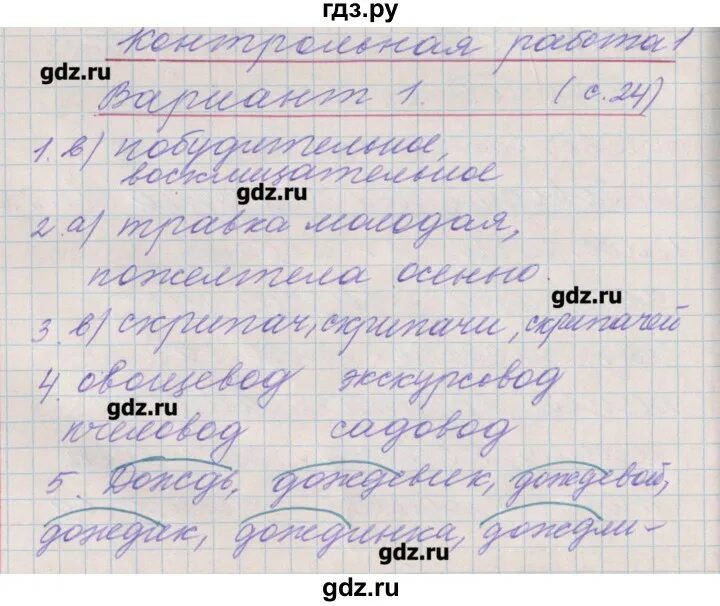 гдз.ру
Контрольная работа 1
gdz.ru
Вариант 1. (с.24)
1. в) побудительное,
восклицательное
gdz.ru
2. а) травка молодая,
пожелтела осенью.
gdz.ru
3. в) скрипач, скрипачи, скрипачей
4. овощевод экскурсовод
gdz.ru
пчеловод садовод
5. Дождь, дождевик, дождевой,
дождик, дождинка, дождли-
gdz.ru
gdz.ru